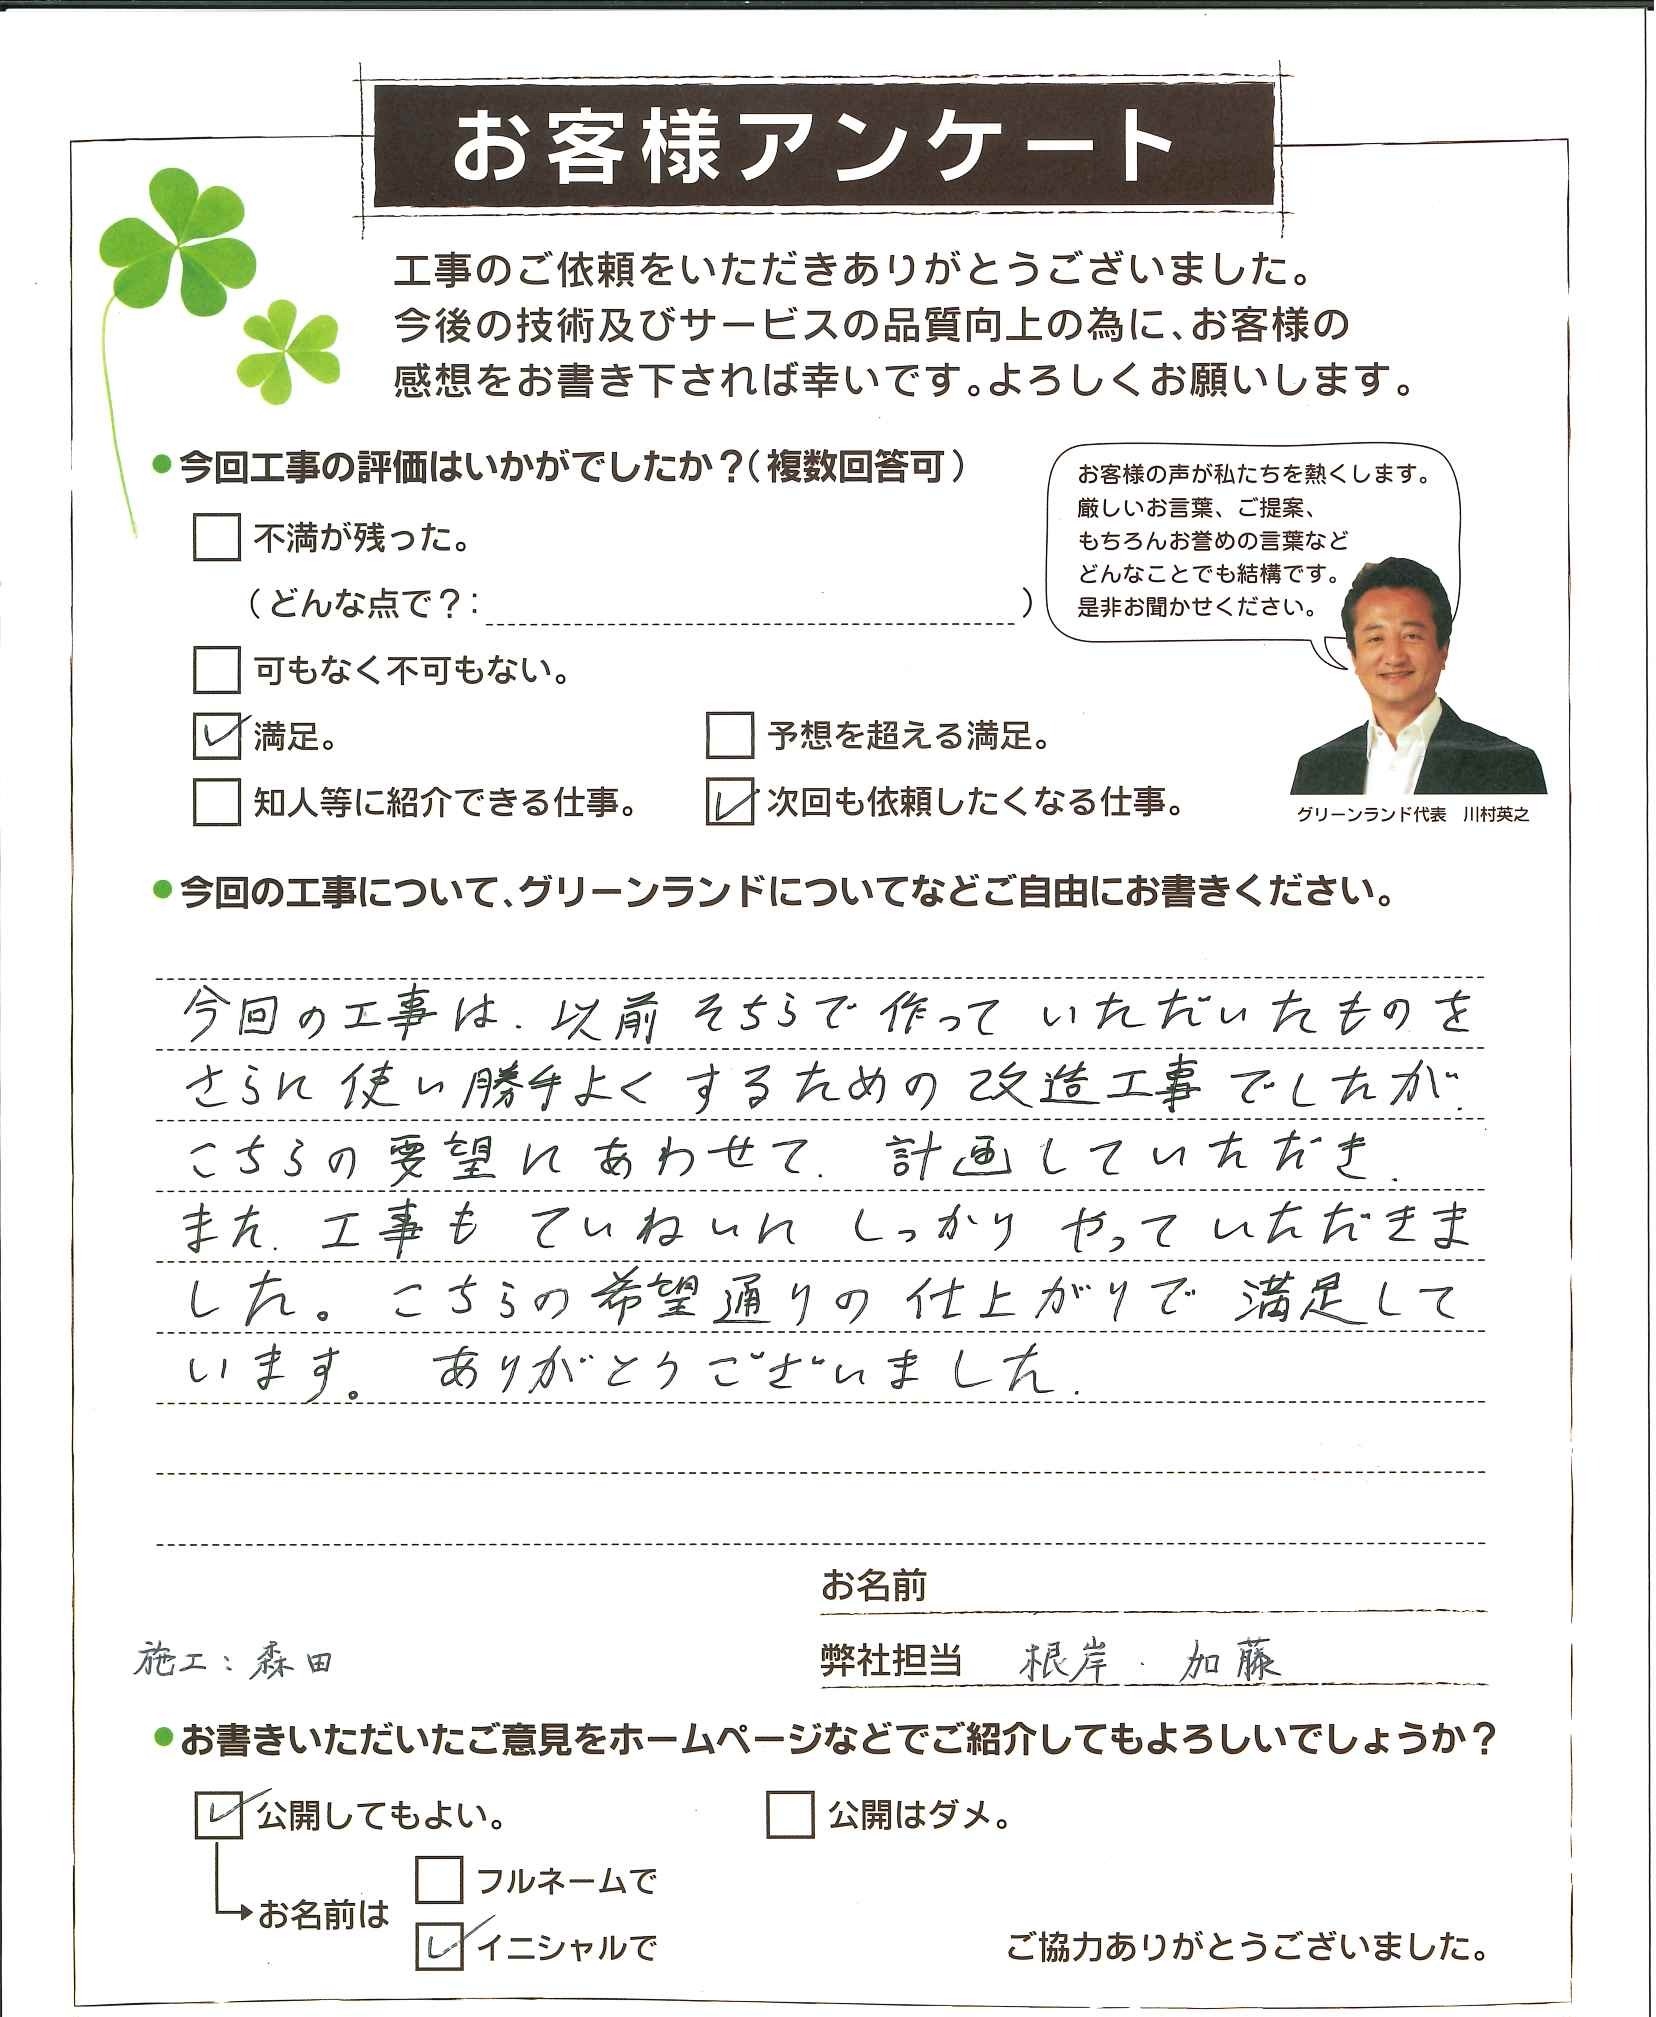 お客様アンケート
工事のご依頼をいただきありがとうございました。
今後の技術及びサービスの品質向上の為に、お客様の
感想をお書き下されば幸いです。よろしくお願いします。
●今回工事の評価はいかがでしたか？（複数回答可）
不満が残った。
（どんな点で？：　　　）
可もなく不可もない。
満足。
予想を超える満足。
知人等に紹介できる仕事。
次回も依頼したくなる仕事。
お客様の声が私たちを熱くします。
厳しいお言葉、ご提案、
もちろんお誉めの言葉など
どんなことでも結構です。
是非お聞かせください。
グリーンランド代表　川村英之
●今回の工事について、グリーンランドについてなどご自由にお書きください。
今回の工事は、以前そちらで作っていただいたものを
さらに使い勝手よくするための改造工事でしたが、
こちらの要望にあわせて、計画していただき、
また、工事もていねいにしっかりやっていただきま
した。こちらの希望通りの仕上がりで満足して
います。ありがとうございました。
お名前
施工：森田
弊社担当　根岸・加藤
●お書きいただいたご意見をホームページなどでご紹介してもよろしいでしょうか？
公開してもよい。
公開はダメ。
お名前は
フルネームで
イニシャルで
ご協力ありがとうございました。